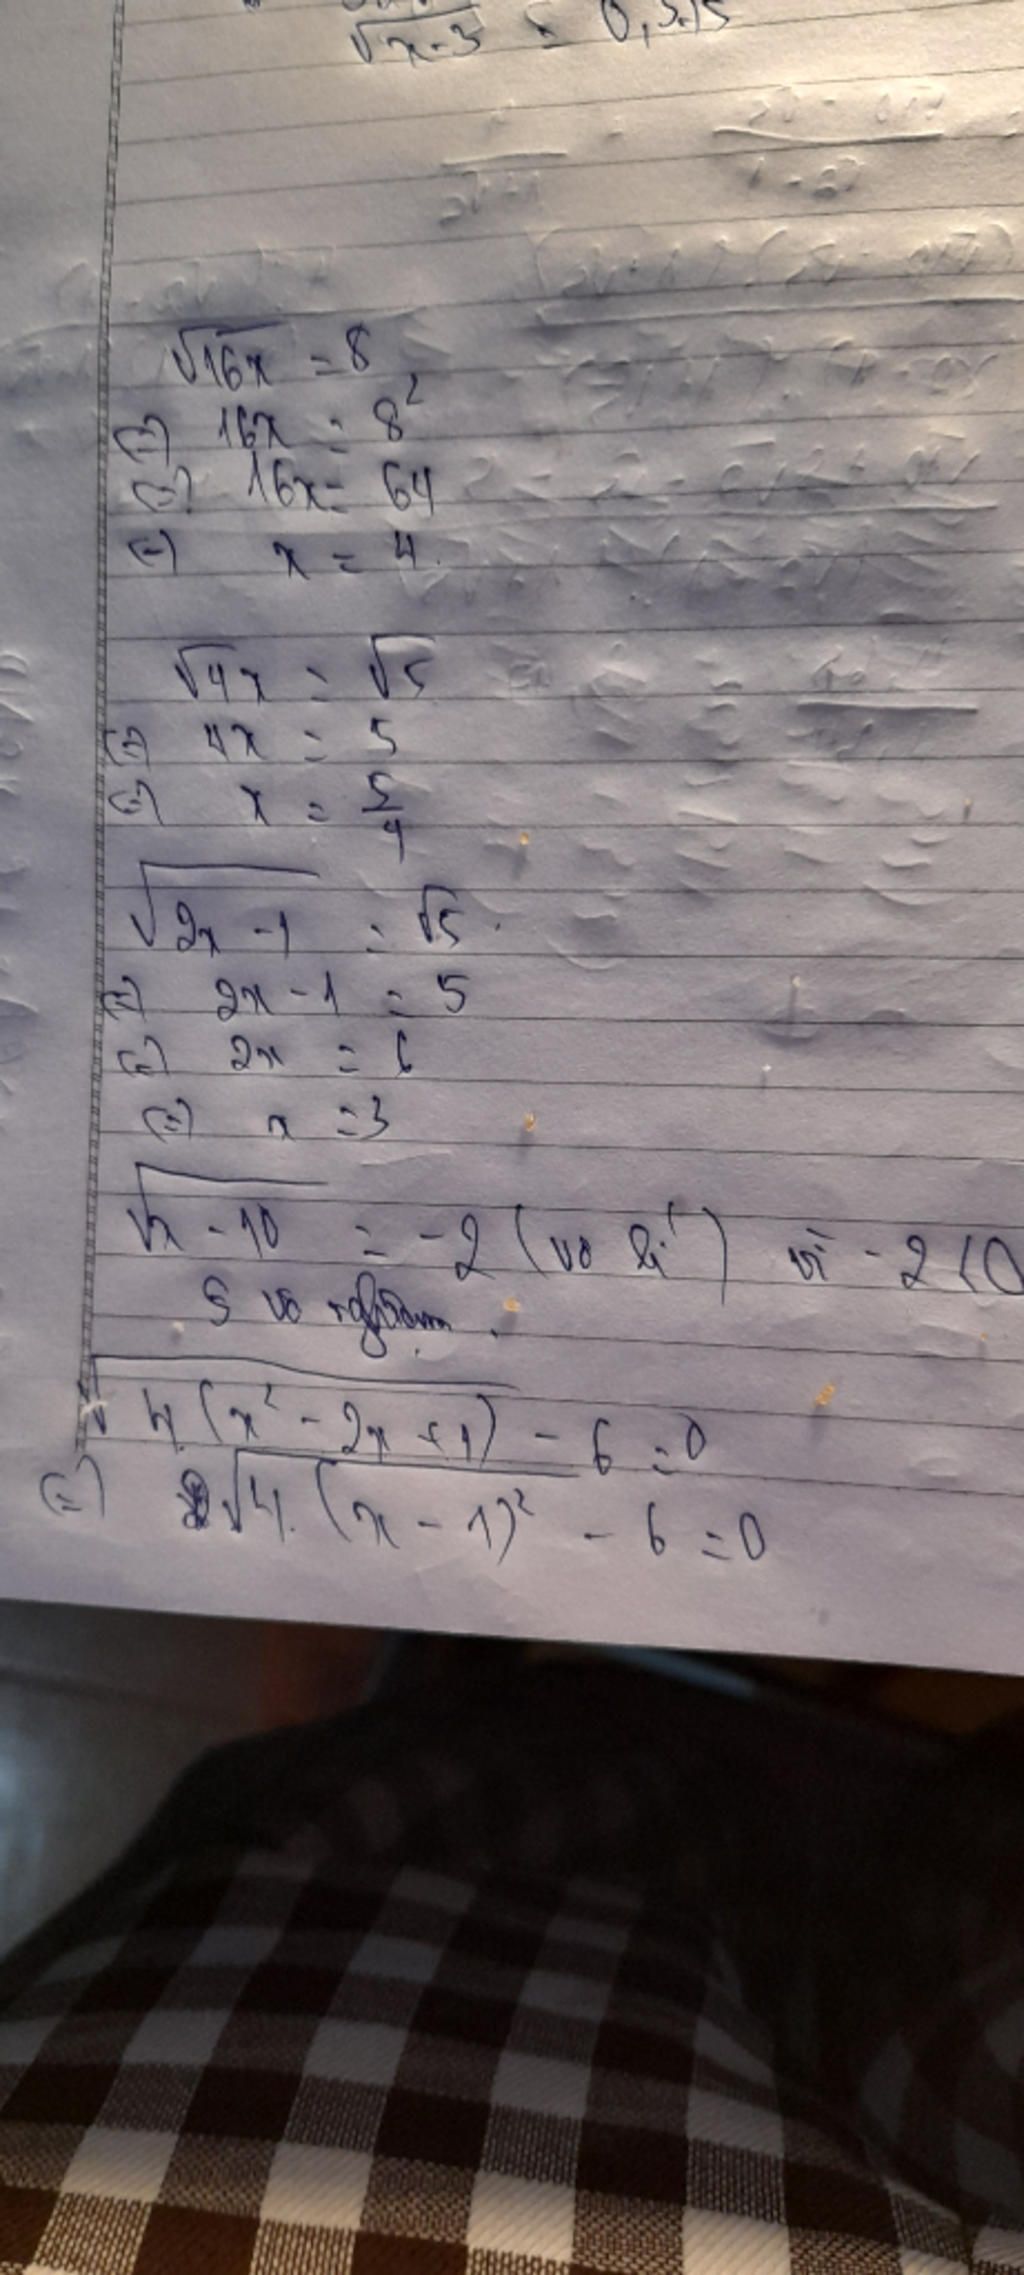 √x-3
√16x = 8
(=) 16x = 8²
(=) 16x = 64
(=) x = 4.
√4x = √5
(=) 4x = 5
(=) x = 5/4
√2x - 1 = √5.
(=) 2x - 1 = 5
(=) 2x = 6
(=) x = 3
√x - 10 = -2 (vô lí) vì -2 < 0
S vô nghiệm.
√4.(x² - 2x + 1) - 6 = 0
(=) √4.(x - 1)² - 6 = 0